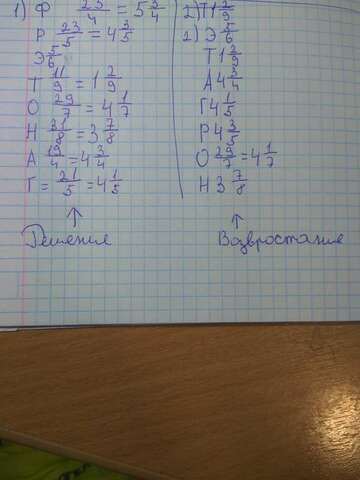 1) Ф 23/4 = 5 3/4
Р 23/5 = 4 3/5
Э 5/6
Т 11/9 = 1 2/9
О 29/7 = 4 1/7
Н 31/8 = 3 7/8
А 19/4 = 4 3/4
Г = 21/5 = 4 1/5
↑
Решения
2) Т 1 2/9
1) Э 5/6
Т 1 2/9
А 4 3/4
Г 4 1/5
Р 4 3/5
О 29/7 = 4 1/7
Н 3 7/8
↑
Возвростание